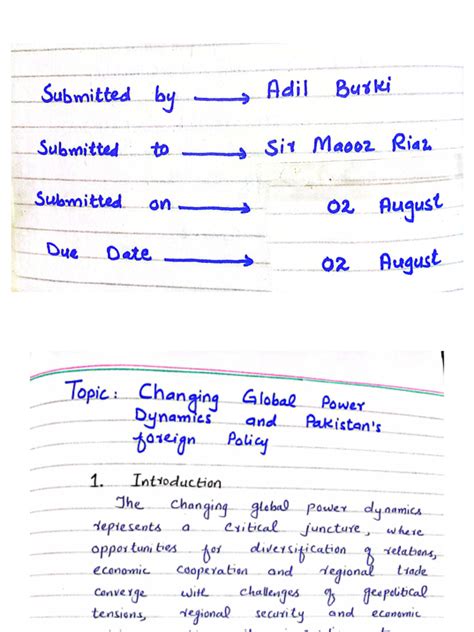 Submitted by → Adil Burki
Submitted to → Sir Maooz Riaz
Submitted on → 02 August
Due Date → 02 August
Topic: Changing Global Power
Dynamics and Pakistan's
foreign Policy
1. Introduction
The Changing global power dynamics
represents a critical juncture, where
opportunities for diversification of relations,
economic cooperation and regional trade
converge with challenges of geopolitical
tensions, regional security and economic